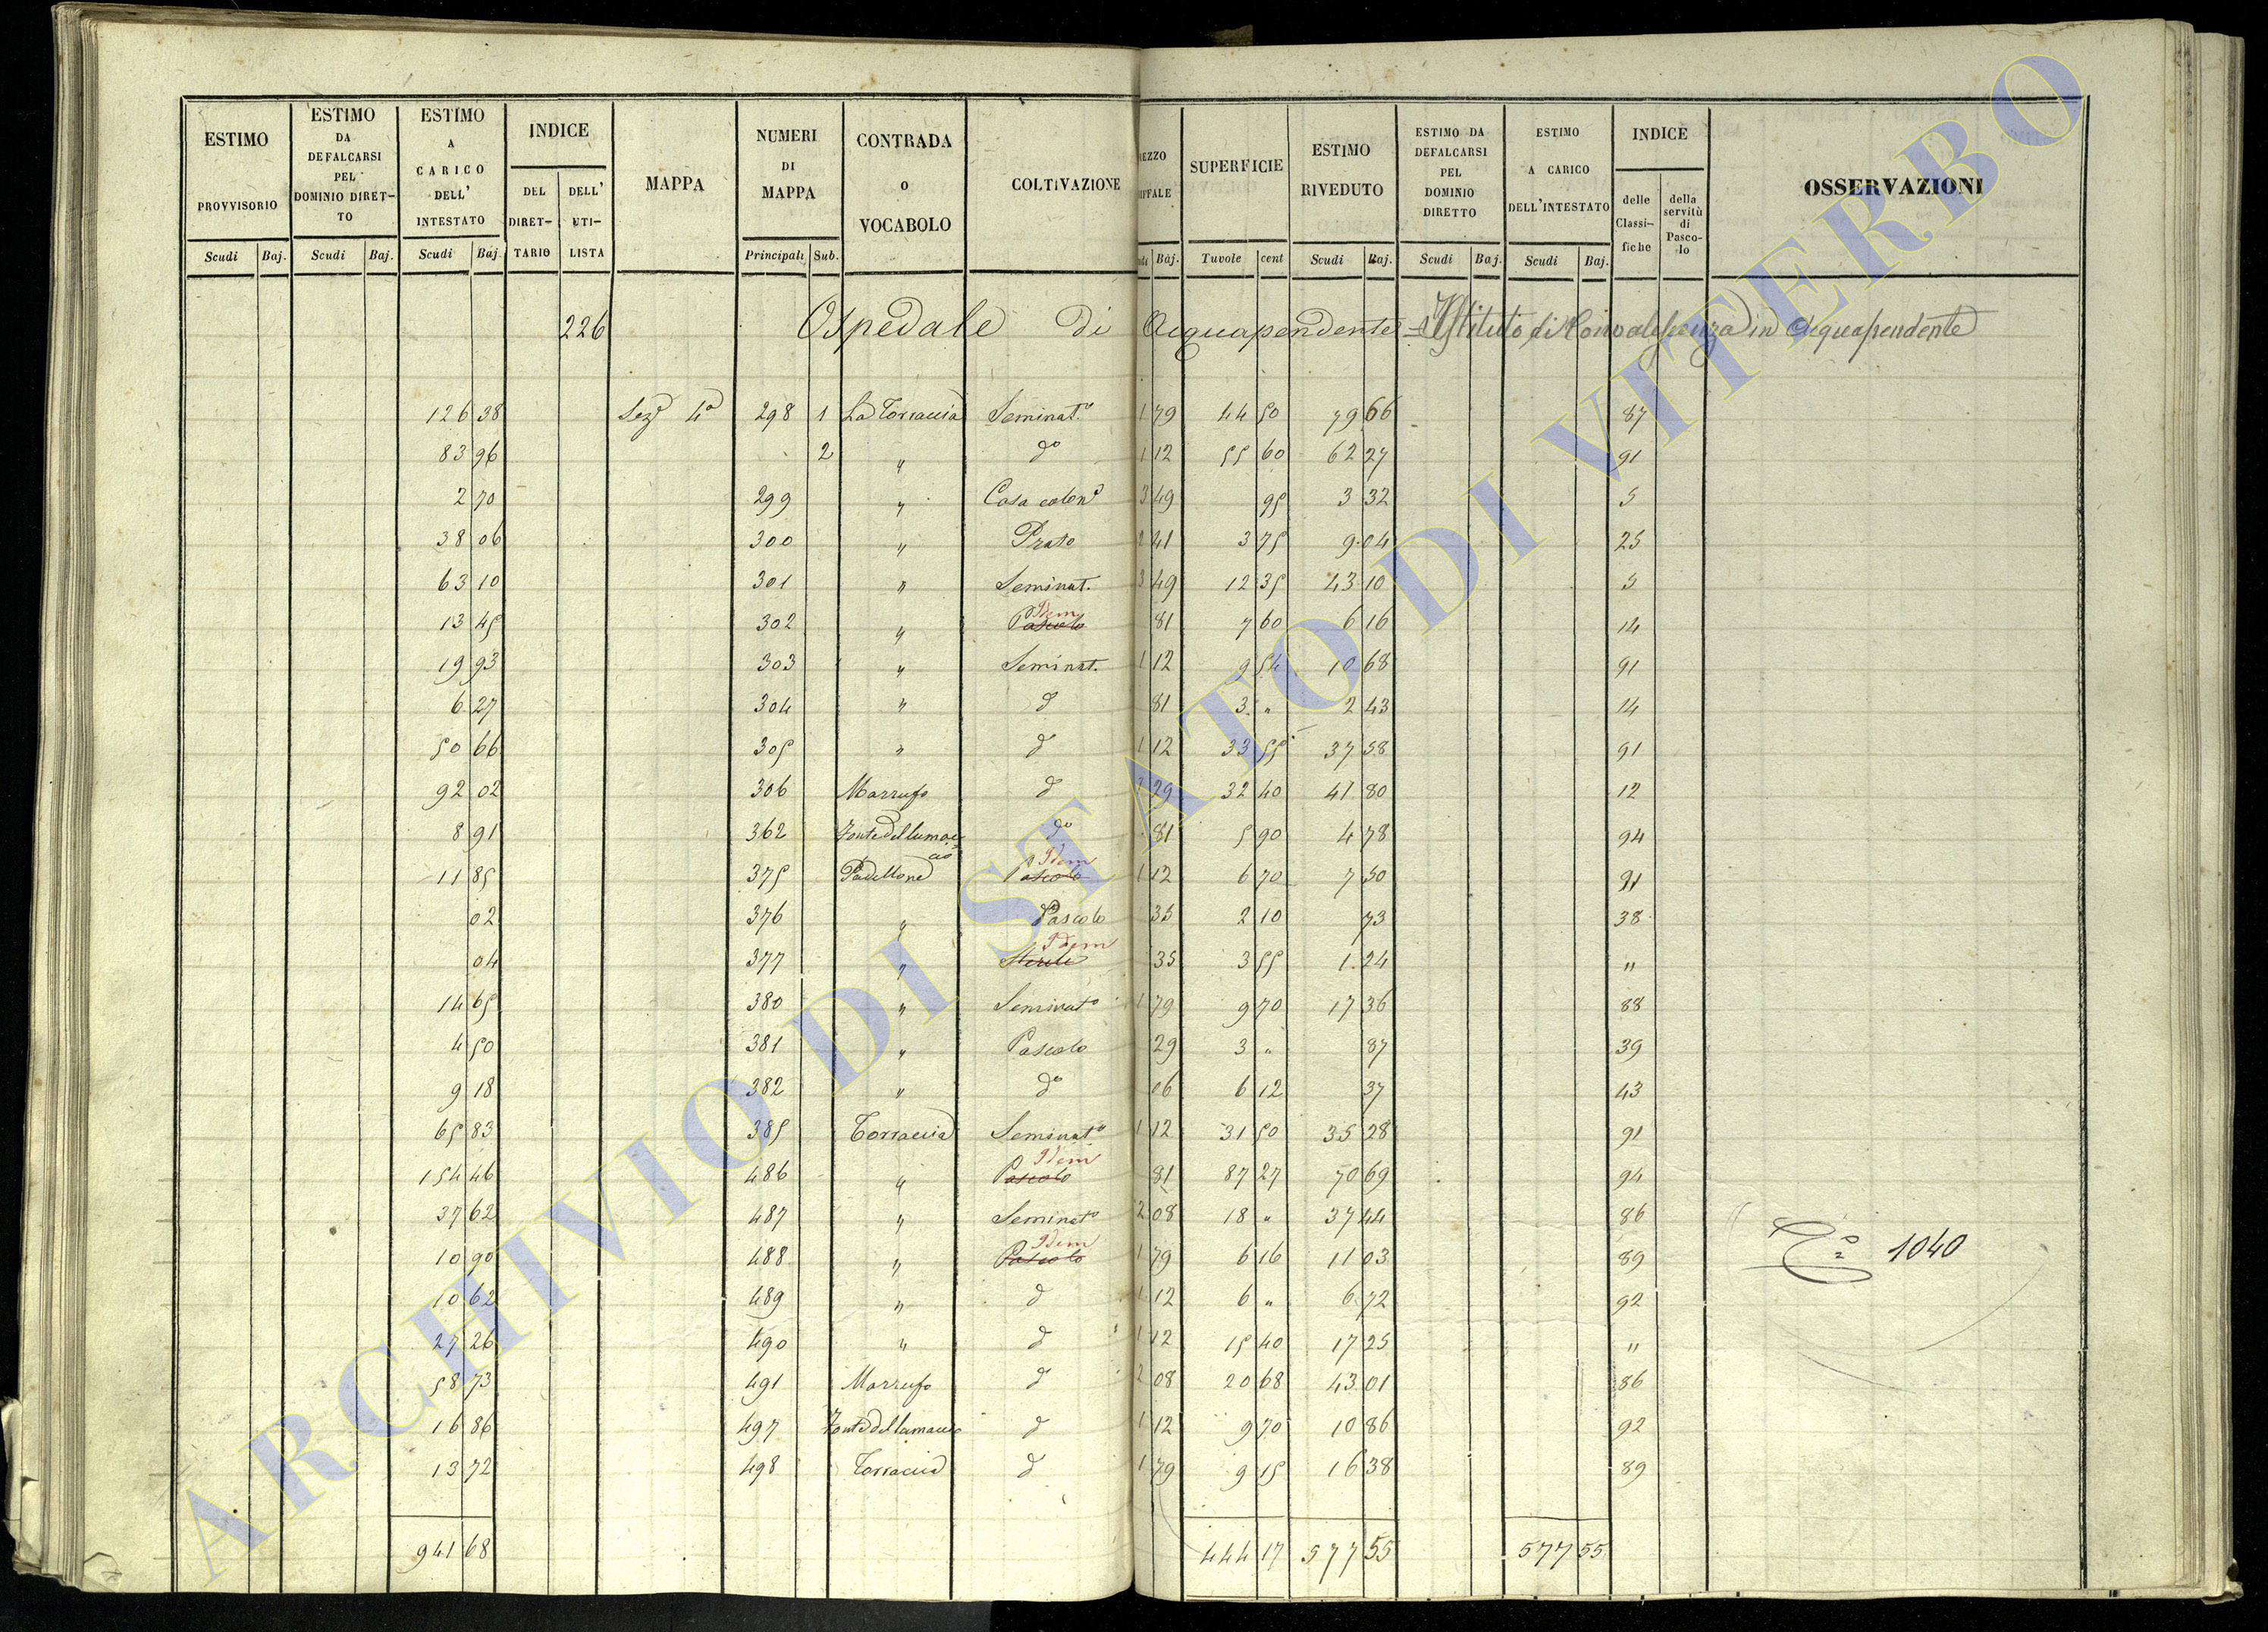 ESTIMO PROVVISORIO Scudi Baj.
ESTIMO DA DEFALCARSI PEL DOMINIO DIRET-TO Scudi Baj.
ESTIMO A CARICO DELL' INTESTATO Scudi Baj.
INDICE DEL DIRET-TARIO DELL' UTI-LISTA
MAPPA
NUMERI DI MAPPA Principali Sub.
CONTRADA O VOCABOLO
COLTIVAZIONE
EZZO IFFALE Baj.
SUPERFICIE Tavole cent
ESTIMO RIVEDUTO Scudi Baj.
ESTIMO DA DEFALCARSI PEL DOMINIO DIRETTO Scudi Baj.
ESTIMO A CARICO DELL'INTESTATO Scudi Baj.
INDICE delle Classi-fiche della servitù di Pasco-lo
OSSERVAZIONI
226 Ospedale di Acquapendente = Istituto di Convalescenza in Acquapendente
126 38 Sez.e 4a 298 1 La Torraccia Seminat.o 1 79 44 50 79 66 87
83 96 2 " do 1 12 55 60 62 27 91
2 70 299 " Casa colon.a 3 49 95 3 32 5
38 06 300 " Prato 2 41 3 75 9 04 25
63 10 301 " Seminat. 3 49 12 35 43 10 5
13 45 302 " Pascolo Idem 81 7 60 6 16 14
19 93 303 " Seminat. 1 12 9 54 10 68 91
6 27 304 " d 81 3 " 2 43 14
50 66 305 " d 1 12 33 55 37 58 91
92 02 306 Marrufo d 1 29 32 40 41 80 12
8 91 362 Fonte del lumaccio do 81 5 90 4 78 94
11 85 375 Padellone Pascolo Idem 1 12 6 70 7 50 91
02 376 " Pascolo 35 2 10 73 38
04 377 " Sterile Idem 35 3 55 1 24 "
14 65 380 " Seminat.o 1 79 9 70 17 36 88
4 50 381 " Pascolo 29 3 " 87 39
9 18 382 " do 06 6 12 37 43
65 83 385 Torraccia Seminat.o 1 12 31 50 35 28 91
154 46 486 " Pascolo Idem 81 87 27 70 69 94
37 62 487 " Seminat.o 2 08 18 " 37 44 86
10 90 488 " Pascolo Idem 1 79 6 16 11 03 89
1040
10 62 489 " d 1 12 6 " 6 72 92
27 26 490 " d 1 12 15 40 17 25 "
58 73 491 Marrufo d 2 08 20 68 43 01 86
16 86 497 Fonte del lumaccio d 1 12 9 70 10 86 92
13 72 498 Torraccia d 1 79 9 15 16 38 89
941 68 444 17 577 55 577 55
ARCHIVIO DI STATO DI VITERBO